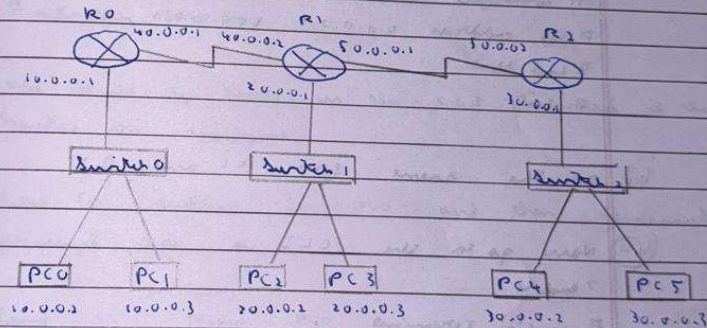 R0 R1 R2
40.0.0.1 40.0.0.2 50.0.0.1 50.0.0.2
10.0.0.1 20.0.0.1 30.0.0.1
Switch 0 Switch 1 Switch 2
PC0 PC1 PC2 PC3 PC4 PC5
10.0.0.2 10.0.0.3 20.0.0.2 20.0.0.3 30.0.0.2 30.0.0.3